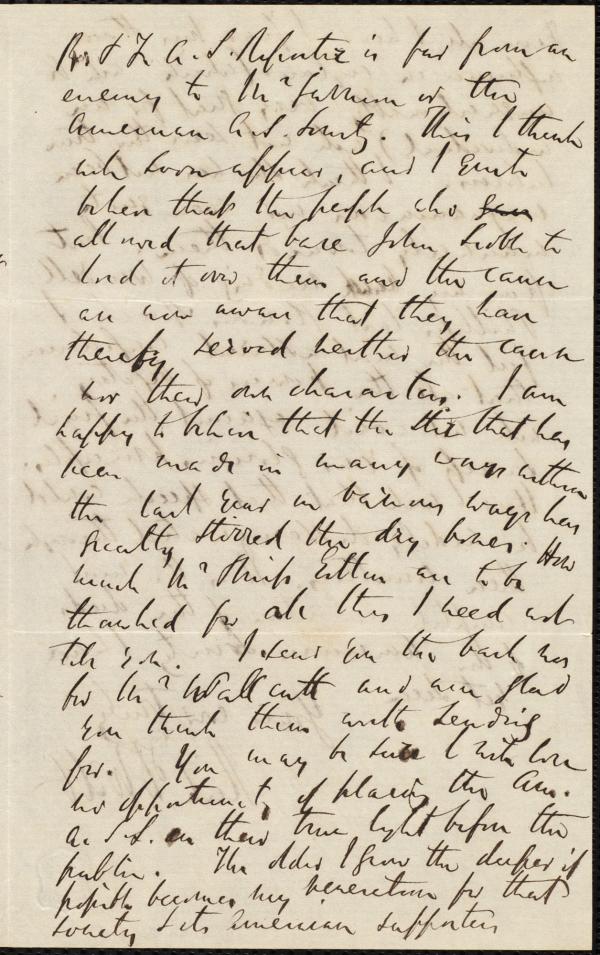 Br. & F. A. S. Reporter is far from an
enemy to Mr Garrison or the
American A. S. Society. This I think
will soon appear, and I quite
believe that the people who
allowed that base John Scoble to
lord it over them and the cause
are now aware that they have
thereby served neither the cause
nor their own characters. I am
happy to believe that the stir that has
been made in many ways within
the last year in various ways has
greatly stirred the dry bones. How
much Mr Estlin are to be
thanked for all this I need not
tell you. I send you the back nos
for Mr Wallcutt and am glad
you think them worth sending
for. You may be sure I will lose
no opportunity of placing the Am.
A. S. S. in their true light before the
public. The older I grow the deeper if
possible becomes my veneration for that
society & its American supporters